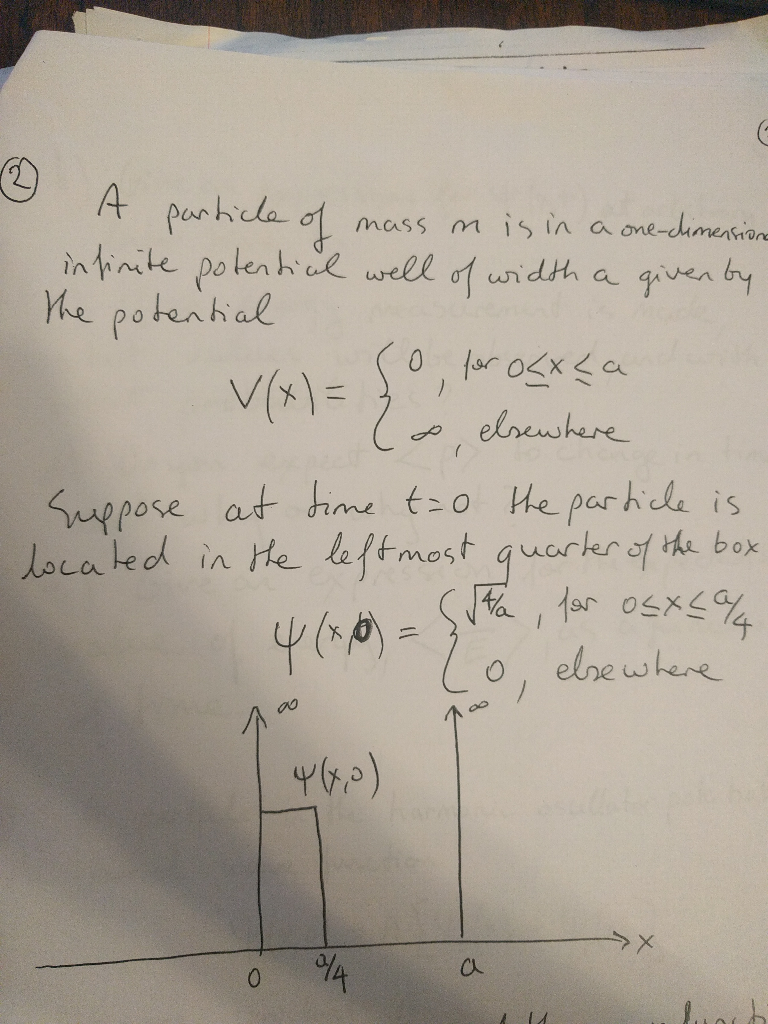 ②
A particle of mass m is in a one-dimension
infinite potential well of width a given by
the potential
V(x) = { 0, for 0≤x≤a
∞, elsewhere
Suppose at time t=0 the particle is
located in the leftmost quarter of the box
ψ(x,0) = { √4/a, for 0≤x≤a/4
0, elsewhere
∞ ∞
ψ(x,0)
x
0 a/4 a